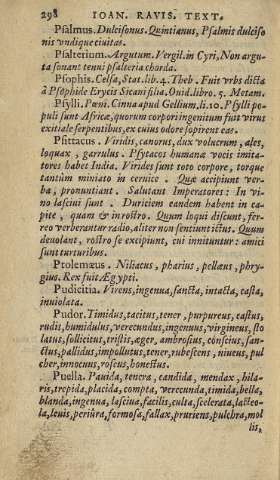 298 IOAN. RAVIS. TEXT.
Psalmus. Dulcisonus. Quintianus, Psalmis dulciso
nis vndique ciuitas.
Psalterium. Argutum. Vergil. in Cyri, Non argu-
ta sonant tenui psalteria chorda.
Psophis. Celsa, Stat. lib. 4. Theb. Fuit vrbs dicta
à Psophide Erycis Sicani filia. Ouid. libro. 5. Metam.
Psylli. Pœni. Cinna apud Gellium, li. 10. Psylli po-
puli sunt Africæ, quorum corpori ingenitum fuit virus
exitiale serpentibus, ex cuius odore sopirent eas.
Psittacus. Viridis, canorus, dux volucrum, ales,
loquax, garrulus. Psytacos humana vocis imita-
tores habet India. Virides sunt toto corpore, torque
tantùm miniato in ceruice. Quæ accipiunt ver-
ba, pronuntiant. Salutant Imperatores: In vi-
no lasciui sunt. Duriciem eandem habent in ca-
pite, quam & in rostro. Quum loqui discunt, fer-
reo verberantur radio, aliter non sentiunt ictus. Quum
deuolant, rostro se excipiunt, cui innituntur: amici
sunt turturibus.
Ptolemæus. Niliacus, pharius, pellæus, phry-
gius. Rex fuit Ægypti.
Pudicitia. Virens, ingenua, sancta, intacta, casta,
inuiolata.
Pudor. Timidus, tacitus, tener, purpureus, castus,
rudis, humidulus, verecundus, ingenuus, virgineus, sto
latus, sollicitus, tristis, æger, ambrosius, conscius, san-
ctus, pallidus, impollutus, tener, rubescens, niueus, pul
cher, innocuus, roseus, honestus.
Puella. Pauida, tenera, candida, mendax, hila-
ris, trepida, placida, compta, verecunda, timida, bella,
blanda, ingenua, lasciua, facilis, culta, scelerata, lacteo-
la, leuis, periura, formosa, fallax, pruriens, pulchra, mol
lis,